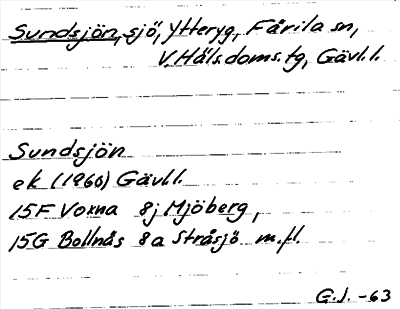 Sundsjön, sjö, Ytteryg, Färila sn,
V. Häls doms.tg, Gävl.l.
Sundsjön
ek (1960) Gävl.l.
15F Voxna 8j Mjöberg,
15G Bollnäs 8a Stråsjö m.fl.
G.J. -63